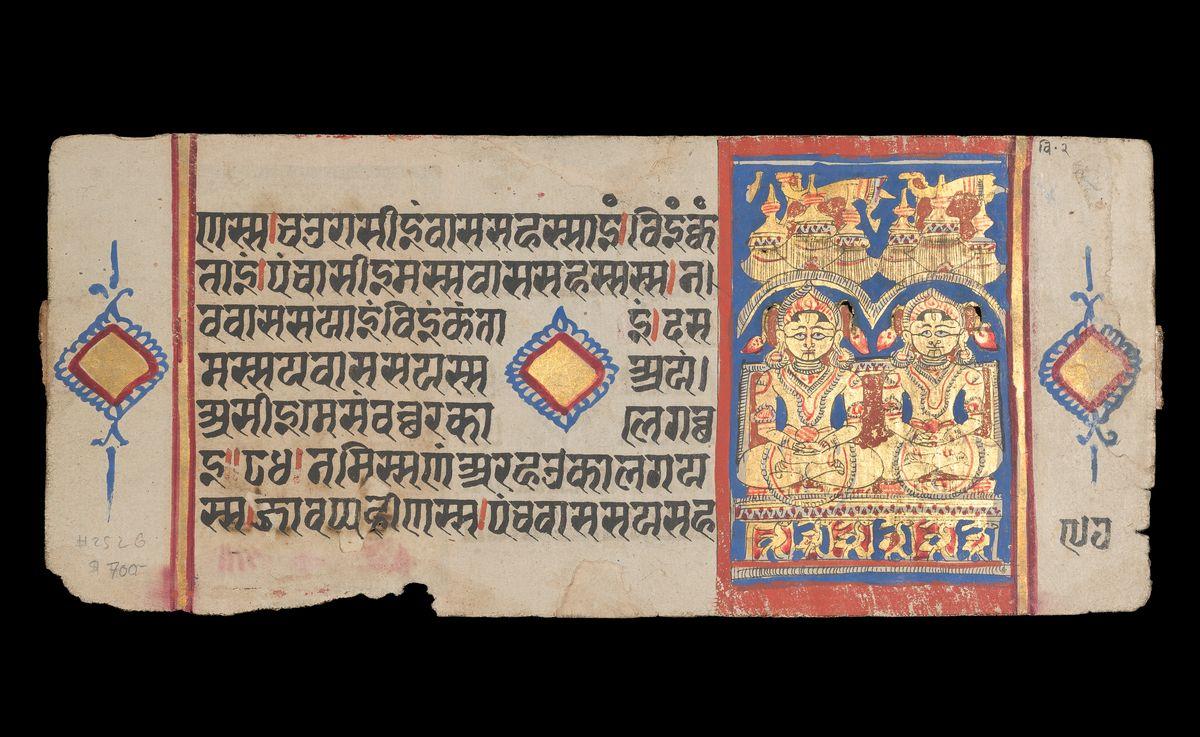 वि. २
णस्स।चउरासीइंवाससहस्साइं।विइक्कं
ताइं।पंचासीइमस्सवाससहस्सस्स।न।
ववाससयाइंविइक्कंता इं।दस
मस्सयवाससयस्स अयं।
असीइमेसंवच्छरेका लेगच्छ
इ॥ नमिस्सणंअरहउकालगय
स्स।जावप्पहीणस्स।पंचवाससयसह
#2526
700-